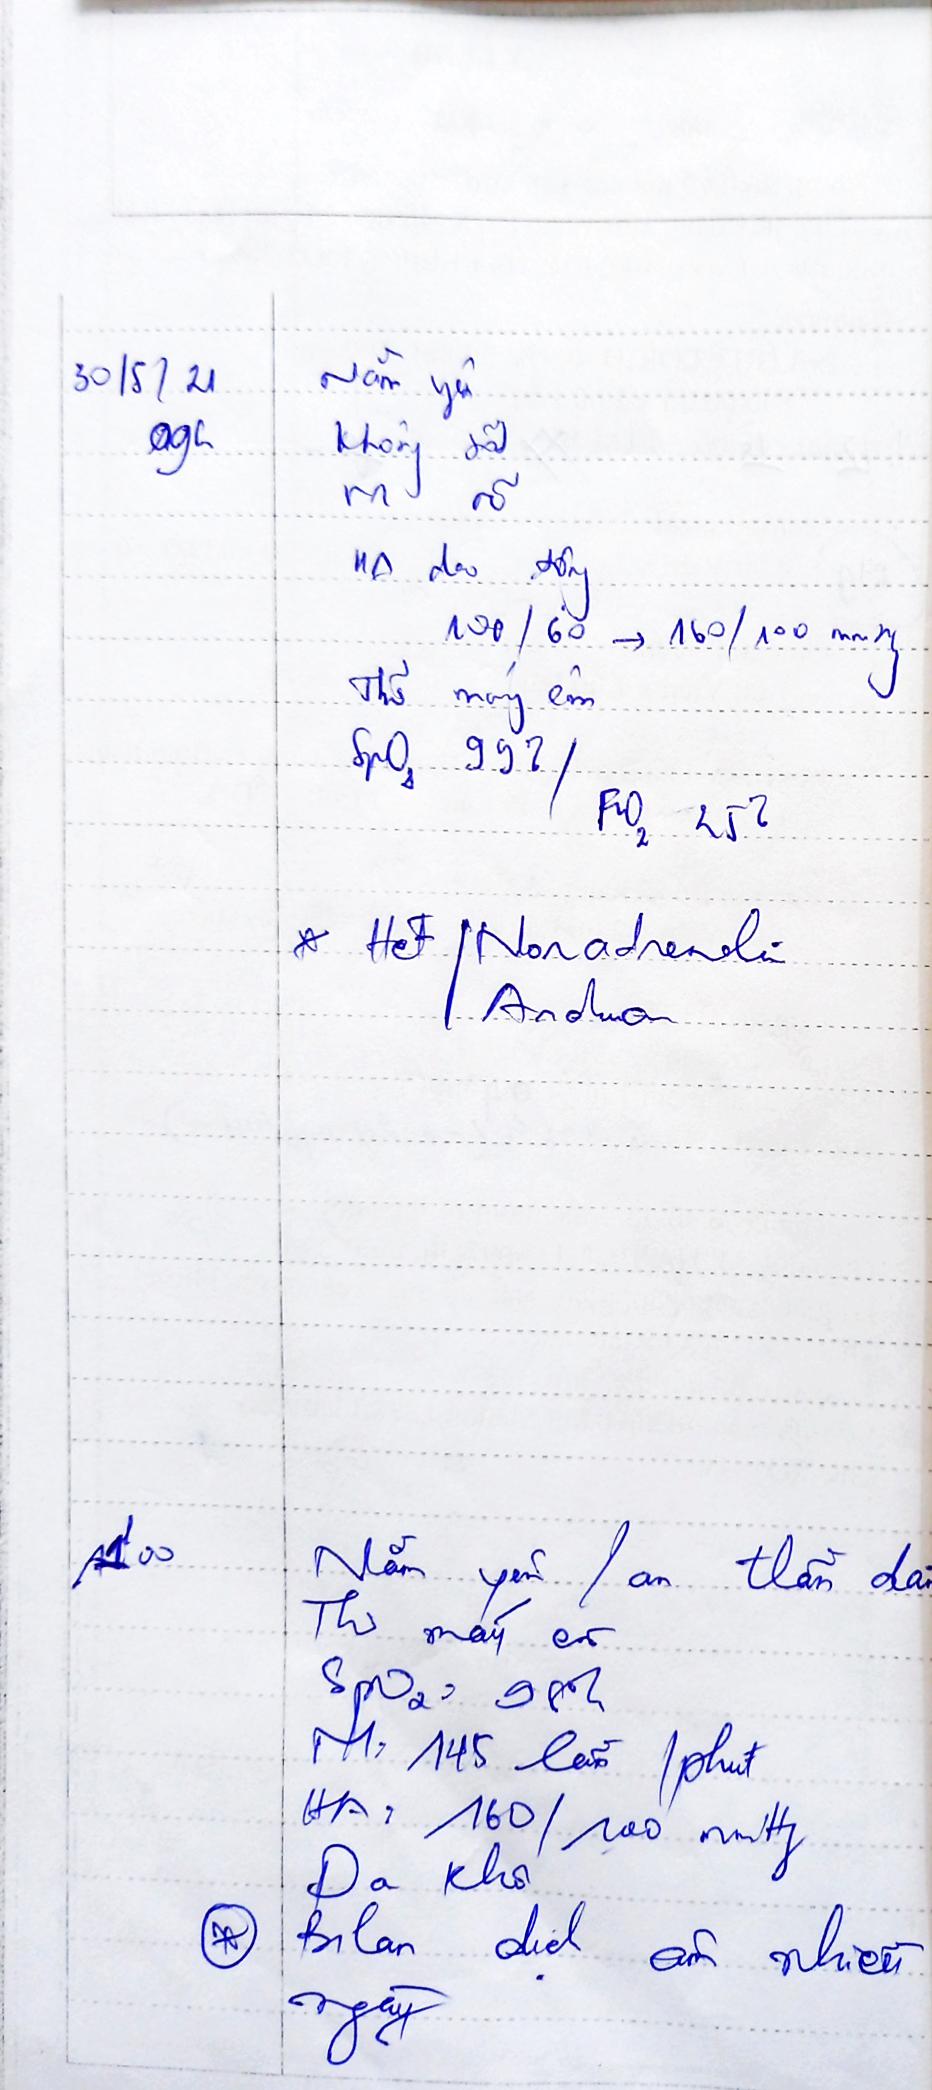 30/5/21 Nằm yên
09h Không sốt
m rõ
HA dao động
100/60 → 160/100 mmHg
Thở máy êm
SpO2 99%/
FiO2 25%
* Hết / Noradrenalin
Arduan
11h00 Nằm yên / an thần
Thở máy êm
SpO2: 98%
M: 145 lần/phút
HA: 160/100 mmHg
Da khô
* Bilan dịch âm nhiều
ngày